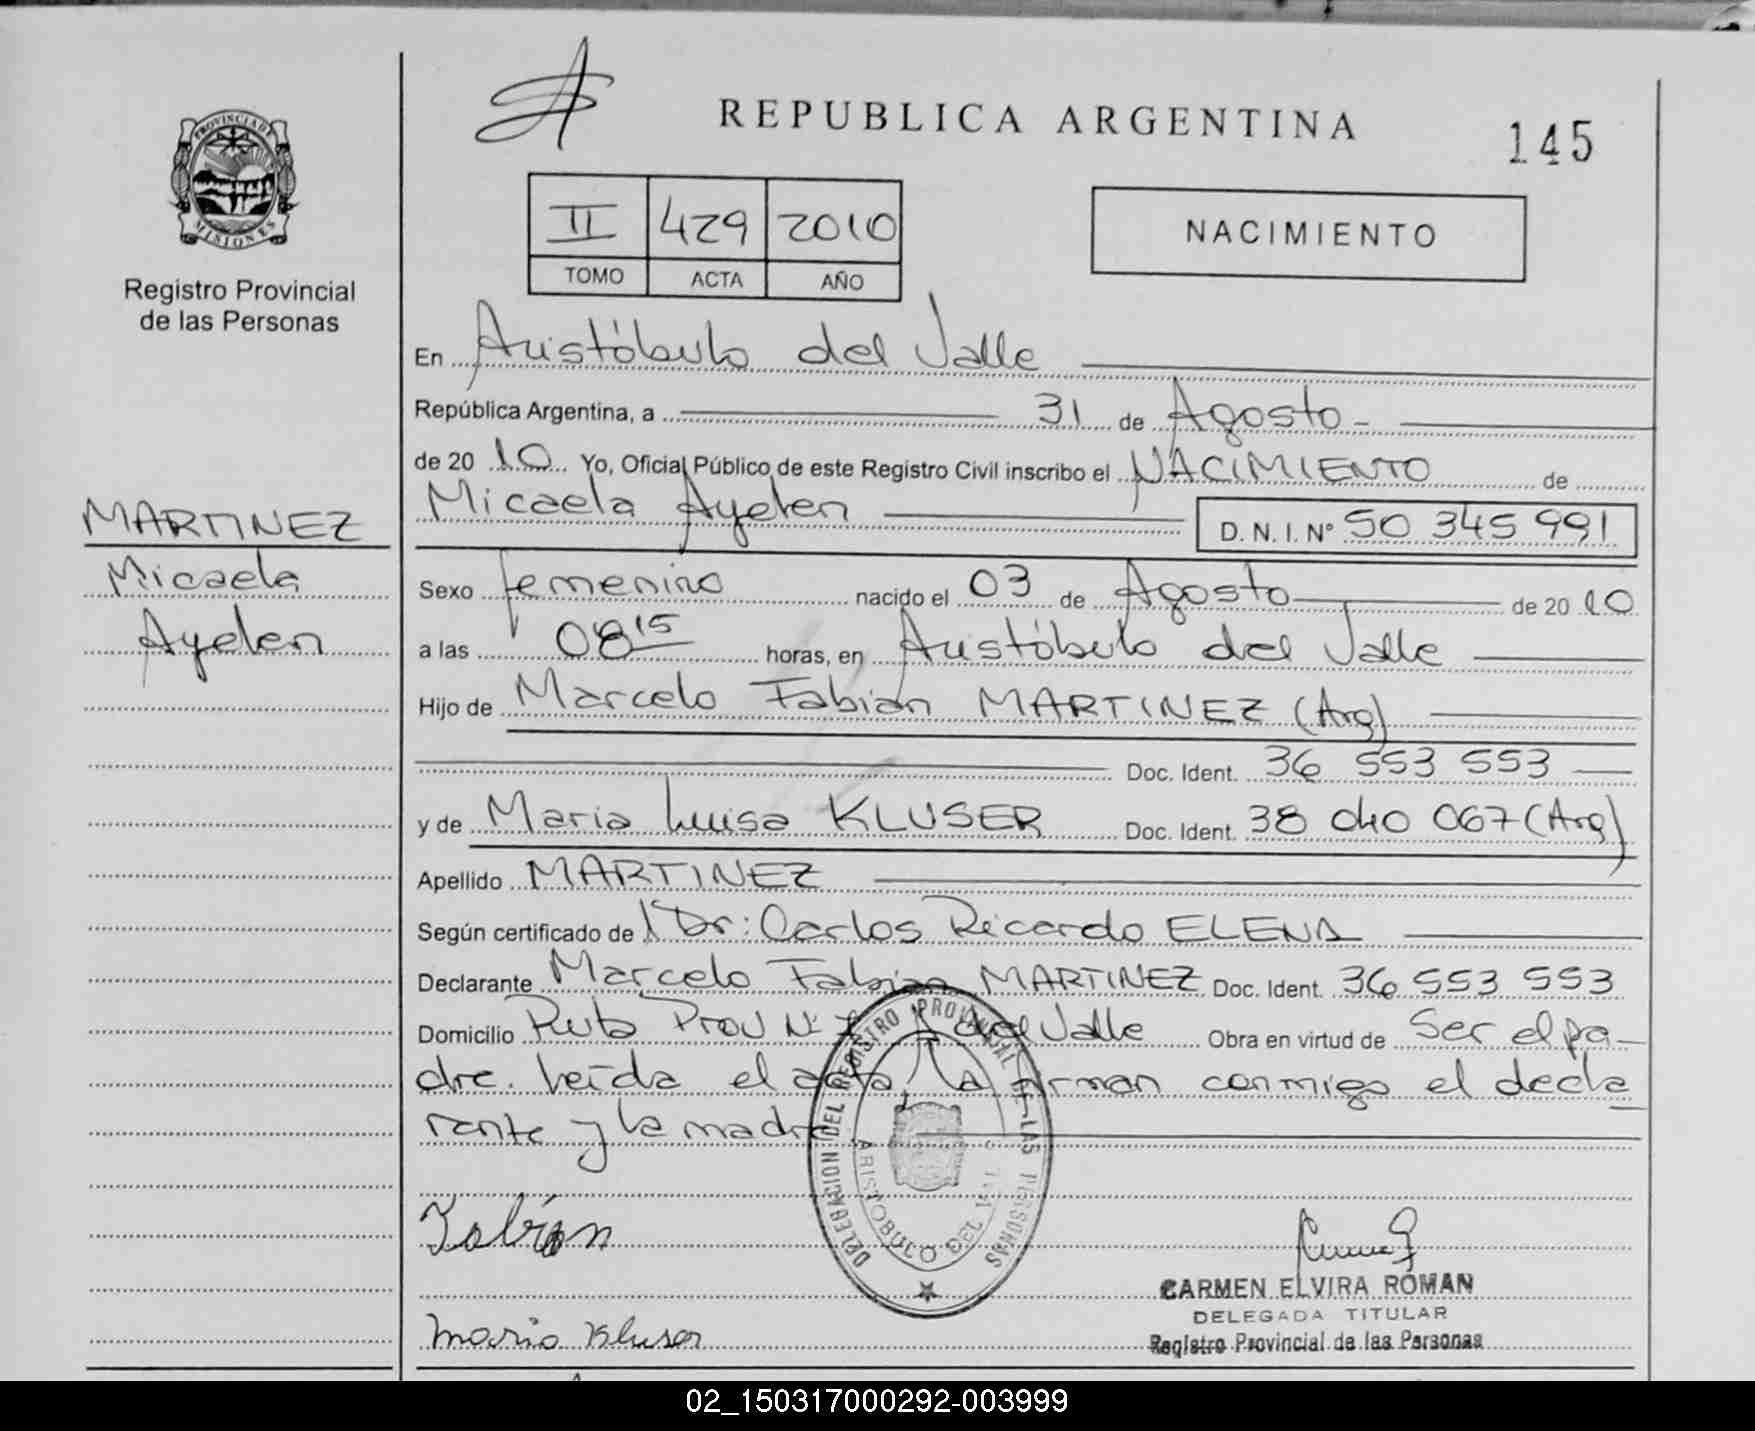 PROVINCIA DE
MISIONES
Registro Provincial
de las Personas
MARTINEZ
Micaela
Ayelen
REPUBLICA ARGENTINA
145
II 429 2010
TOMO ACTA AÑO
NACIMIENTO
En Aristóbulo del Valle
República Argentina, a 31 de Agosto
de 20 10 Yo, Oficial Público de este Registro Civil inscribo el NACIMIENTO de
Micaela Ayelen D. N. I. N° 50 345 991
Sexo femenino nacido el 03 de Agosto de 20 10
a las 08 15 horas, en Aristóbulo del Valle
Hijo de Marcelo Fabian MARTINEZ (Arg)
Doc. Ident. 36 553 553
y de Maria Luisa KLUSER Doc. Ident. 38 040 067 (Arg)
Apellido MARTINEZ
Según certificado de Dr: Carlos Ricardo ELENA
Declarante Marcelo Fabian MARTINEZ Doc. Ident. 36 553 553
Domicilio Ruta Prov N° 7 A del Valle Obra en virtud de Ser el pa-
dre. Leida el acta, la firman conmigo el decla
rante y la madre
DELEGACION DEL REGISTRO PROVINCIAL DE LAS PERSONAS
ARISTOBULO DEL VALLE
Fabian
CARMEN ELVIRA ROMAN
DELEGADA TITULAR
maria Kluser
Registro Provincial de las Personas
02_150317000292-003999